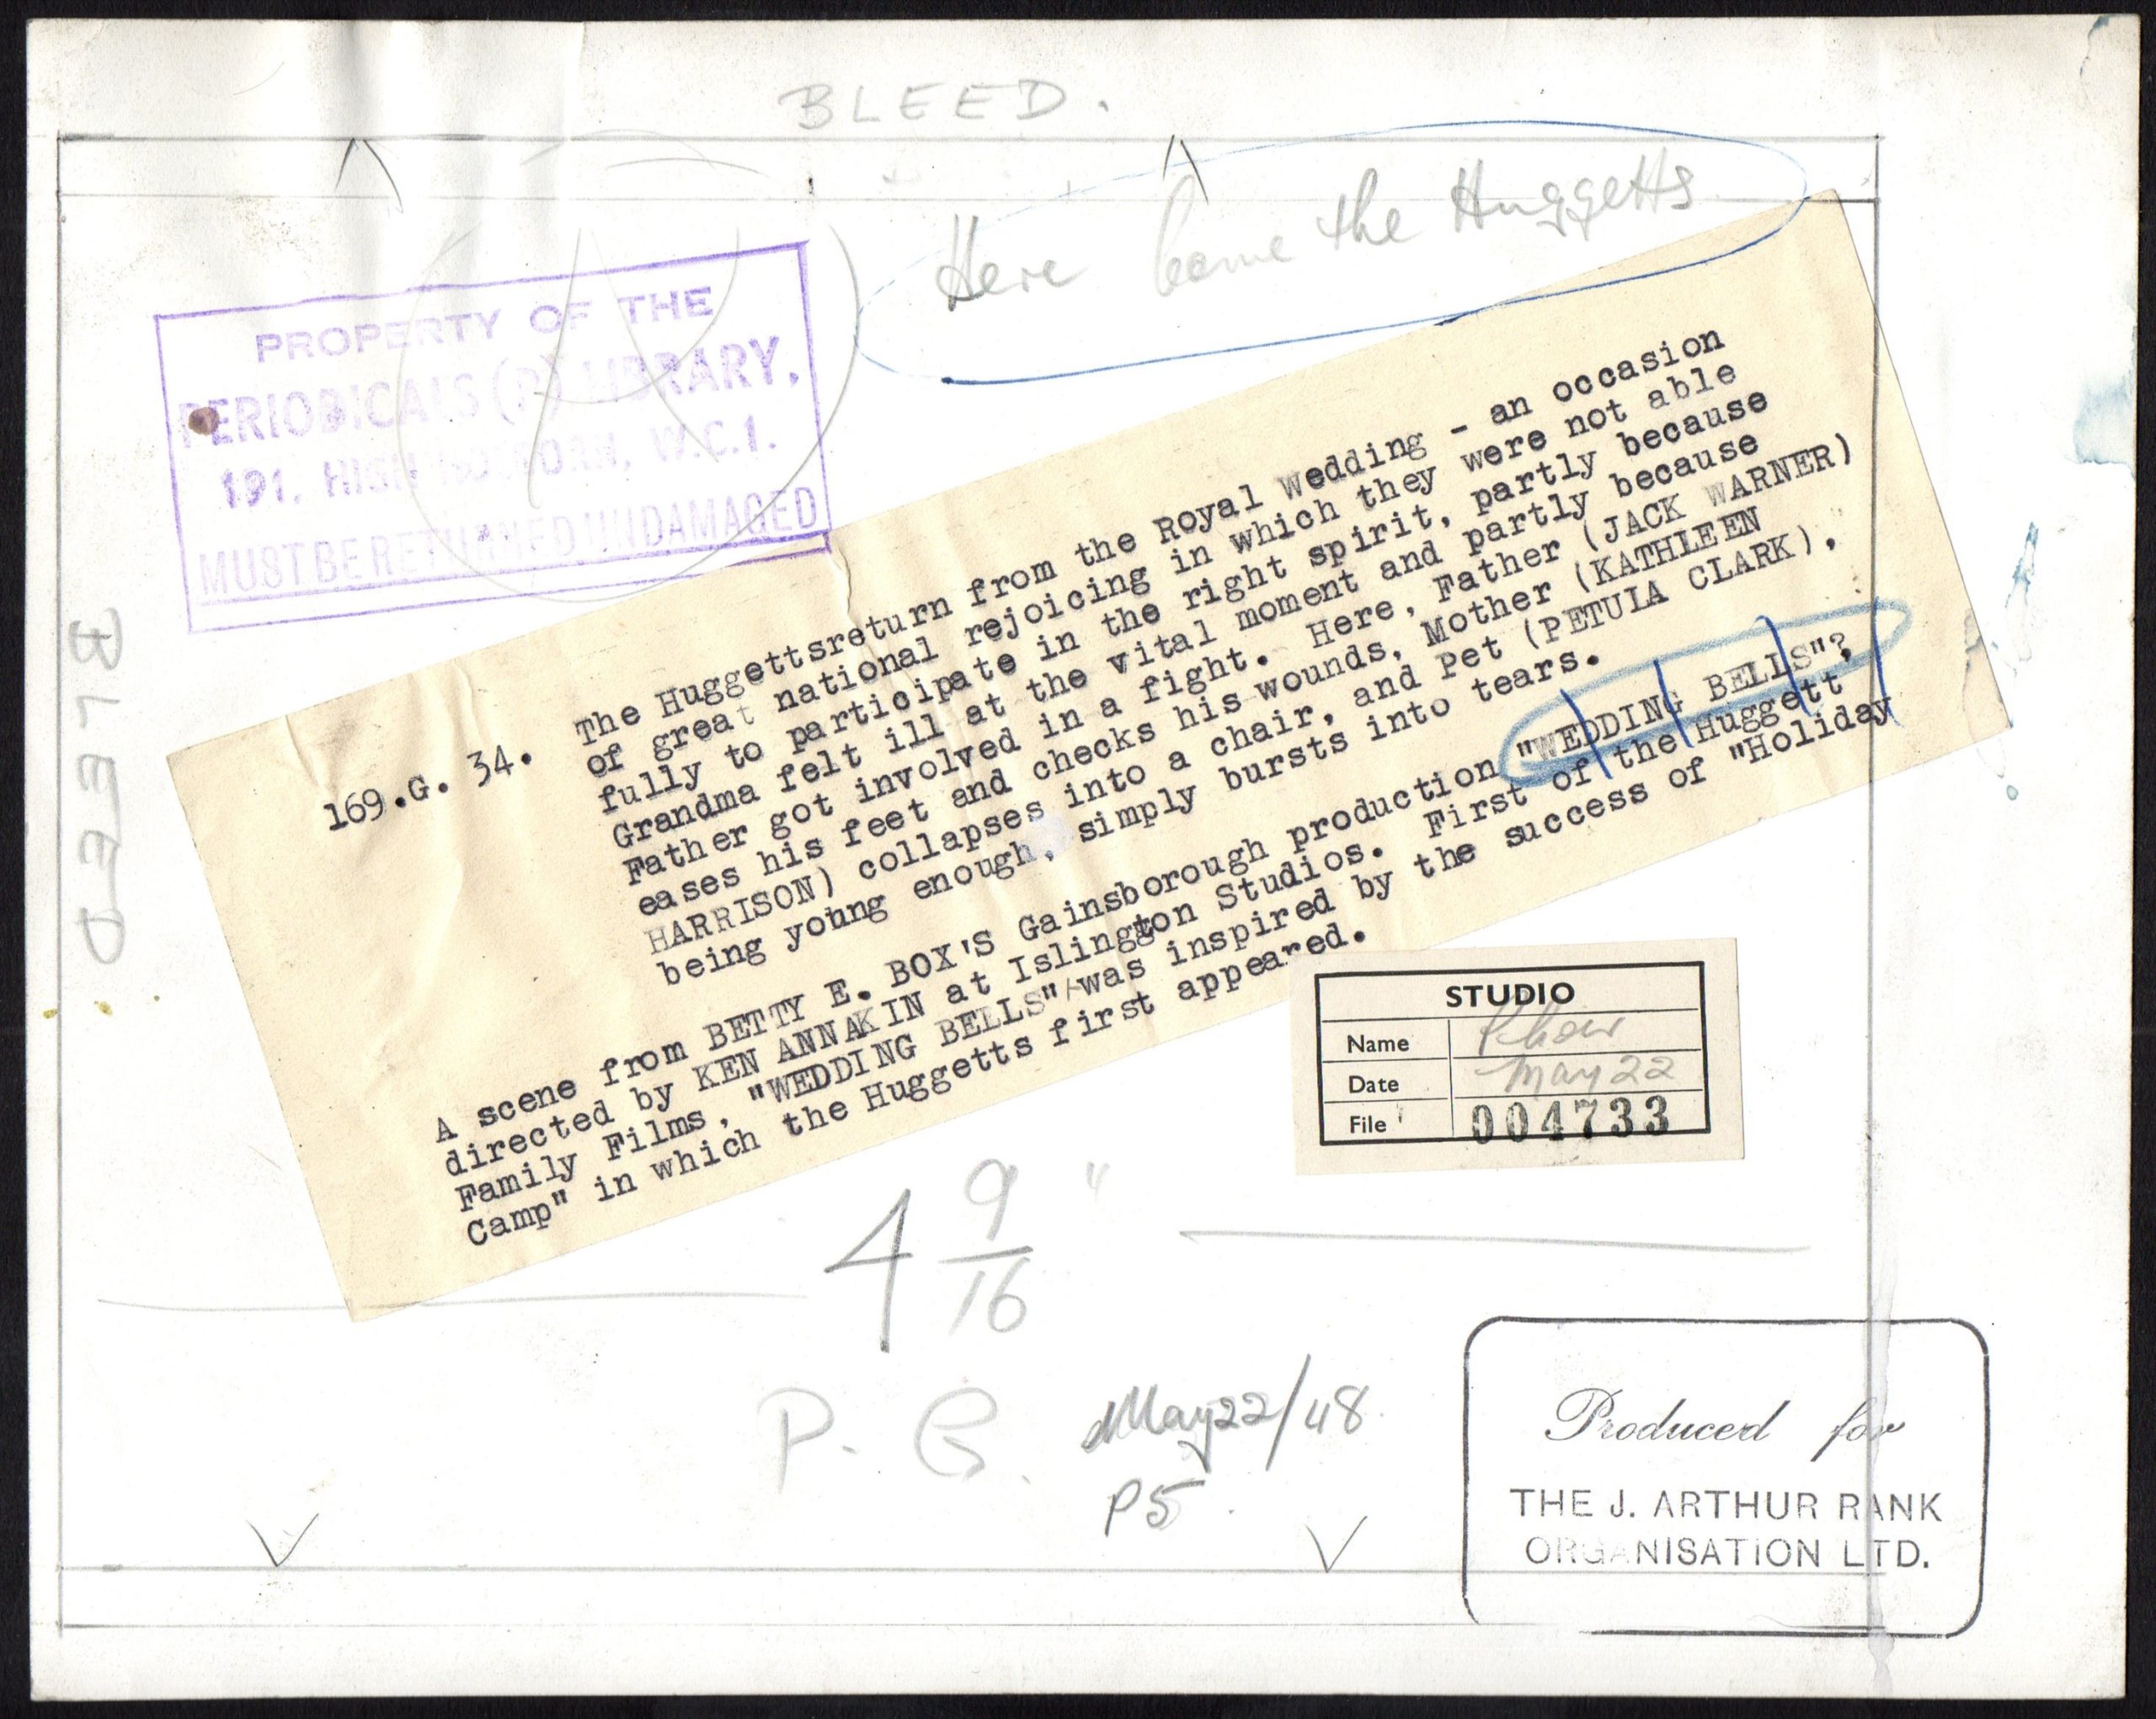 BLEED.
Here Come the Huggetts
PROPERTY OF THE
PERIODICALS (P) LIBRARY,
191, HIGH HOLBORN, W.C.1.
MUST BE RETURNED UNDAMAGED
BLEED
169.G. 34. The Huggettsreturn from the Royal Wedding - an occasion
of great national rejoicing in which they were not able
fully to participate in the right spirit, partly because
Grandma felt ill at the vital moment and partly because
Father got involved in a fight. Here, Father (JACK WARNER)
eases his feet and checks his wounds, Mother (KATHLEEN
HARRISON) collapses into a chair, and Pet (PETULA CLARK),
being young enough, simply bursts into tears.
A scene from BETTY E. BOX'S Gainsborough production "WEDDING BELLS"?
directed by KEN ANNAKIN at Islington Studios. First of the Huggett
Family Films, "WEDDING BELLS" was inspired by the success of "Holiday
Camp" in which the Huggetts first appeared.
STUDIO
Name
Date May 22
File 004733
4 9/16 "
P. G. May 22/48
P5.
Produced for
THE J. ARTHUR RANK
ORGANISATION LTD.